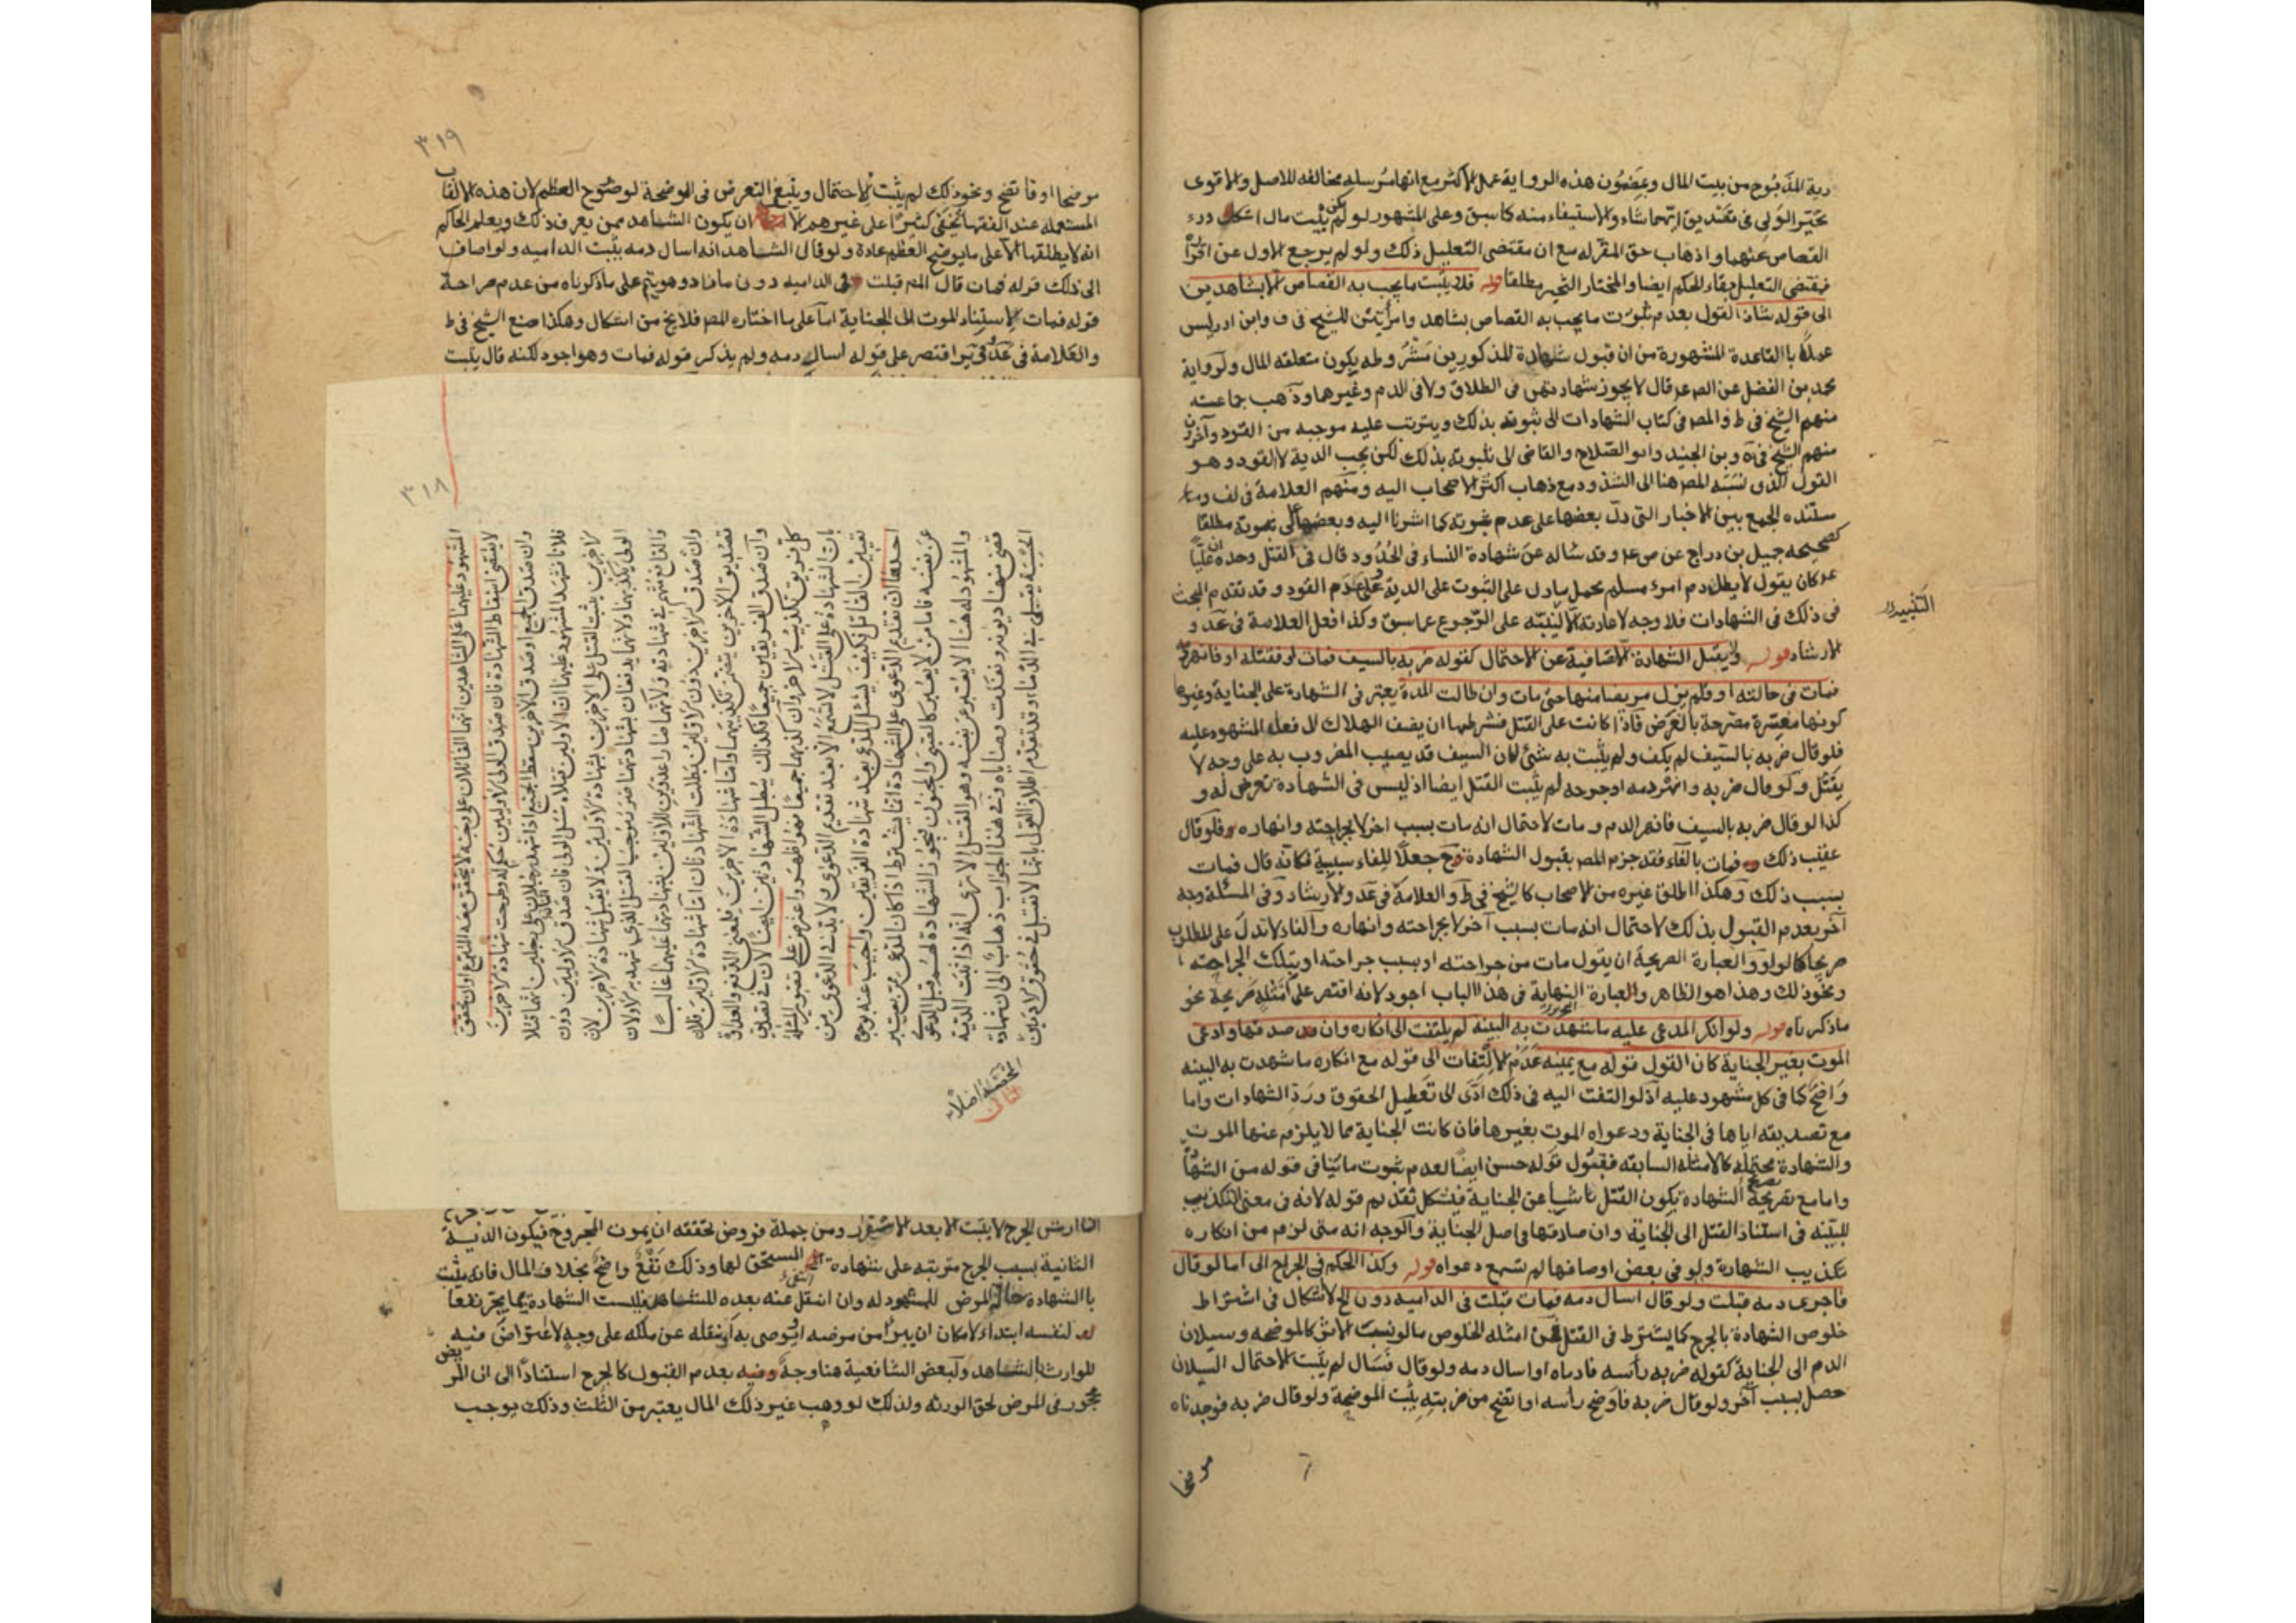 دية المذبوح من بيت المال وبمضمون هذه الرواية عمل الأكثر مع انها مرسلة مخالفة للاصل والاقوى
تخير الولي في تصديق ايهما شاء والاستيفاء منه كما سبق وعلى المشهور لو لم يكن بيت مال اشكل درء
القصاص عنهما واذهاب حق المقر له مع ان مقتضى التعليل ذلك ولو لم يرجع الاول عن اقراره
فمقتضى التعليل بقاء الحكم ايضا والمختار التخير مطلقا قوله فلا يثبت ما يجب به القصاص الا بشاهدين
الى قوله شاذ القول بعدم ثبوت ما يجب به القصاص بشاهد وامرأتين للشيخ في ف وابن ادريس
عملا باالقاعدة المشهورة من ان قبول شهادة المذكورين مشروطه بكون متعلقه المال ولرواية
محمد بن الفضل عن الصادق قال لا يجوز شهادتهن في الطلاق ولا في الدم وغيرها وذهب جماعته
منهم الشيخ في ط والمصر في كتاب الشهادات الى ثبوته بذلك ويترتب عليه موجبه من القود وآخرون
منهم الشيخ في ية وبن الجنيد وابو الصلاح والقاضي الى ثبوته بذلك لكن يجب الدية لا القود وهو
القول الذي نسبه المصر هنا الى الشذوذ مع ذهاب اكثر الاصحاب اليه ومنهم العلامة في لف
مستنده الجمع بين الاخبار التي دل بعضها على عدم ثبوته كما اشرنا اليه وبعضها الى ثبوته مطلقا
كصحيحه جميل بن دراج عن وقد سأله عن شهادة النساء في الحدود قال في القتل وحده ان عليا
كان يقول لا يطل دم امرئ مسلم بحمل ما دل على الثبوت على الدية وعلى عدم القود وقد تقدم البحث
في ذلك في الشهادات فلا وجه لاعادته الا لينبه على الرجوع عما سبق وكذا فعل العلامة في عد و
الارشاد قوله ولا يقبل الشهادة الا صافية عن الاحتمال كقوله ضربه بالسيف فمات او فقتله او فانهر دمه
فمات في حالته او فلم يزل مريضا منها حتى مات وان طالت المدة يعتبر في الشهادة على الجناية وغيرها
كونها مفسرة مصرحة بالغرض فاذا كانت على القتل فشرطها ان يضف الهلاك الى فعل المشهود عليه
فلو قال ضربه بالسيف لم يكف ولم يثبت به شئ لان السيف قد يصيب المضروب به على وجه لا
يقتل ولو قال ضربه وانهر دمه اوجرحه لم يثبت القتل ايضا اذ ليس في الشهادة تعرض له و
كذا لو قال ضربه بالسيف فانهر الدم ومات لاحتمال انه مات بسبب اخر لا بجراحته وانهاره فلو قال
عقيب ذلك فمات بالفاء فقد جزم المصر بقبول الشهادة ح جعلا للفاء سببية فكانه قال فمات
بسبب ذلك وهكذا اطلق غيره من الاصحاب كالشيخ في ط والعلامة في عد والارشاد وفي المسئلة وجه
آخر بعدم القبول بذلك لاحتمال انه مات بسبب آخر لا بجراحته وانهاره والفاء لا تدل على المطلوب
صريحا كالواو والعبارة الصريحة ان يقول مات من جراحته او بسبب جراحته او بتلك الجراحة
ونحو ذلك وهذا هو الظاهر والعبارة النهاية في هذا الباب اجود لانه اقتصر على امثلة صريحة نحو
ماذكرناه قوله ولو انكر المدعى عليه ماشهدت به البينه لم يلتفت الى انكاره وان صدقها وادعى
الموت بغير الجناية كان القول قوله مع يمينه عدم الالتفات الى قوله مع انكاره ما شهدت به البينه
واضح كما في كل مشهود عليه اذ لو التفت اليه في ذلك ادى الى تعطيل الحقوق ورد الشهادات واما
مع تصديقه اياها في الجناية ودعواه الموت بغيرها فان كانت الجناية مما لا يلزم عنها الموت
والشهادة محتملة كالامثله السابقه فقبول قوله حسن ايضا لعدم ثبوت ما ينافي قوله من الشهادة
واما مع تصريحه الشهادة بكون القتل ناشيا عن الجناية فيشكل تقديم قوله لانه في معنى التكذيب
للبينه في استناد القتل الى الجناية وان صادقها في اصل الجناية والوجه انه متى لزم من انكاره
تكذيب الشهادة ولو في بعض اوصافها لم تسمع دعواه قوله وكذا الحكم في الجراح الى اما لو قال
فاجرى دمه قبلت ولو قال اسال دمه فمات قبلت في الداميه دون الخ لا اشكال في اشتراط
خلوص الشهادة بالجرح كما يشترط في القتل فمن امثله الخلوص
الدم الى الجناية كقوله ضربه برأسه فادماه او اسال دمه ولو قال فسال لم يثبت لاحتمال السيلان
حصل بسبب آخر ولو قال ضربه فاوضح رأسه او اتضح من ضربته يثبت الموضحة ولو قال ضربه فوجدناه
موضحا
٣١٩
موضحا او فاتضح ونحو ذلك لم يثبت للاحتمال وينبغي التعرض في الموضحة لوضوح العظم لان هذه الالقاب
المستعمله عند الفقها تخفى كثيرا على غيرهم الا ان يكون الشاهد ممن يعرف ذلك ويعلم الحاكم
انه لا يطلقها الا على ما يوضح العظم عادة ولو قال الشاهد انه اسال دمه يثبت الداميه ولو اضاف
الى ذلك قوله فمات قال المصر قبلت في الداميه دون مازاد وهو يتم على ماذكرناه من عدم صراحة
قوله فمات لاستناد الموت الى الجناية اما على ما اختاره المصر فلا يخ من اشكال وهكذا صنع الشيخ في ط
والعلامة في عد في ير اقتصر على قوله اسال دمه ولم يذكر قوله فمات وهو اجود لكنه قال يثبت
٣١٨
المشهود عليهما على الشاهدين انهما القاتلان على وجه لا يتحقق معه التبرع او ان تحقق
لا يقتضي اسقاط الشهادة فان صدق الولي الاولين حكم له وطرحت شهادة الاخرين
وان صدق الجميع او صدق الاخرين سقط الجميع اذا شهد رجلان على رجلين انهما قتلا
فلانا فشهد المشهود عليهما ان الاولين قتلاه سئل الولي فان صدق الاولين دون
الاخرين يثبت القتل على الاخرين بشهادة الاولين ولا يقبل شهادة الاخرين لان
الولي يكذبهما ولانهما يدفعان بشهادتهما ضررا موجب القتل الذي شهد به الاولان
والدافع متهم في شهادته ولانهما صارا عدوين للاولين بشهادتهما عليهما غالبا
وان صدق الاخرين دون الاولين بطلت الشهادتان اما شهادة الاولين فلان
تصديق الاخرين يتضمن تكذيبهما واما شهادة الاخرين فلمعنى الدفع والعداوة
وان صدق الفريقين جميعا فكذلك يبطل الشهادتين ايضا لان في تصديق
كل فريق تكذيب الاخر وان كذبهما جميعا فهو اظهر واعترض على تصوير المسئلة
بان الشهادة على القتل لا تسمع الا بعد تقديم الدعوى ولا بد في الدعوى من
تعيين القاتل فكيف يسئل المدعي بعد شهادة الفريقين واجيب عنه بوجوه
احدها ان تقديم الدعوى على الشهادة انما يشترط اذا كان المدعي ممن يعبر
عن نفسه فاما من لا يعبر كالصبي والمجنون فيجوز الشهادة لهم قبل الدعوى
والمشهود له هنا لا يعبر عن نفسه وهو القتيل الا ترى انه اذا ثبت الدية
قضي منها ديونه ونفذت وصاياه وفي هذا الجواب ذهاب الى ان شهادة
الحسبة تقبل في الدماء وقد تقدم اطلاق القول بانها لا تقبل في حقوق الادميين
المحضة اصلا
الثاني
ارش الجرح لا يثبت الا بعد الاستقرار ومن جملة فروض تحققه ان يموت المجروح فيكون الدية
الثانية بسبب الجرح مترتبه على شهادة المستحق لها وذلك نفع واضح بخلاف المال فانه يثبت
باالشهادة حال المرض للمشهود له وان انتقل عنه بعده للشاهد فليست الشهادة مما يجر نفعا
لنفسه ابتداء لامكان ان يبرأ من مرضه او يوصى به او نقله عن ملكه على وجه لا اعتراض فيه
للوارث الشاهد ولبعض الشافعية هنا وجه بعدم القبول كالجرح استنادا الى ان المريض
محجور في المرض لحق الورثه ولذلك لو وهب غير ذلك المال يعتبر من الثلث وذلك يوجب